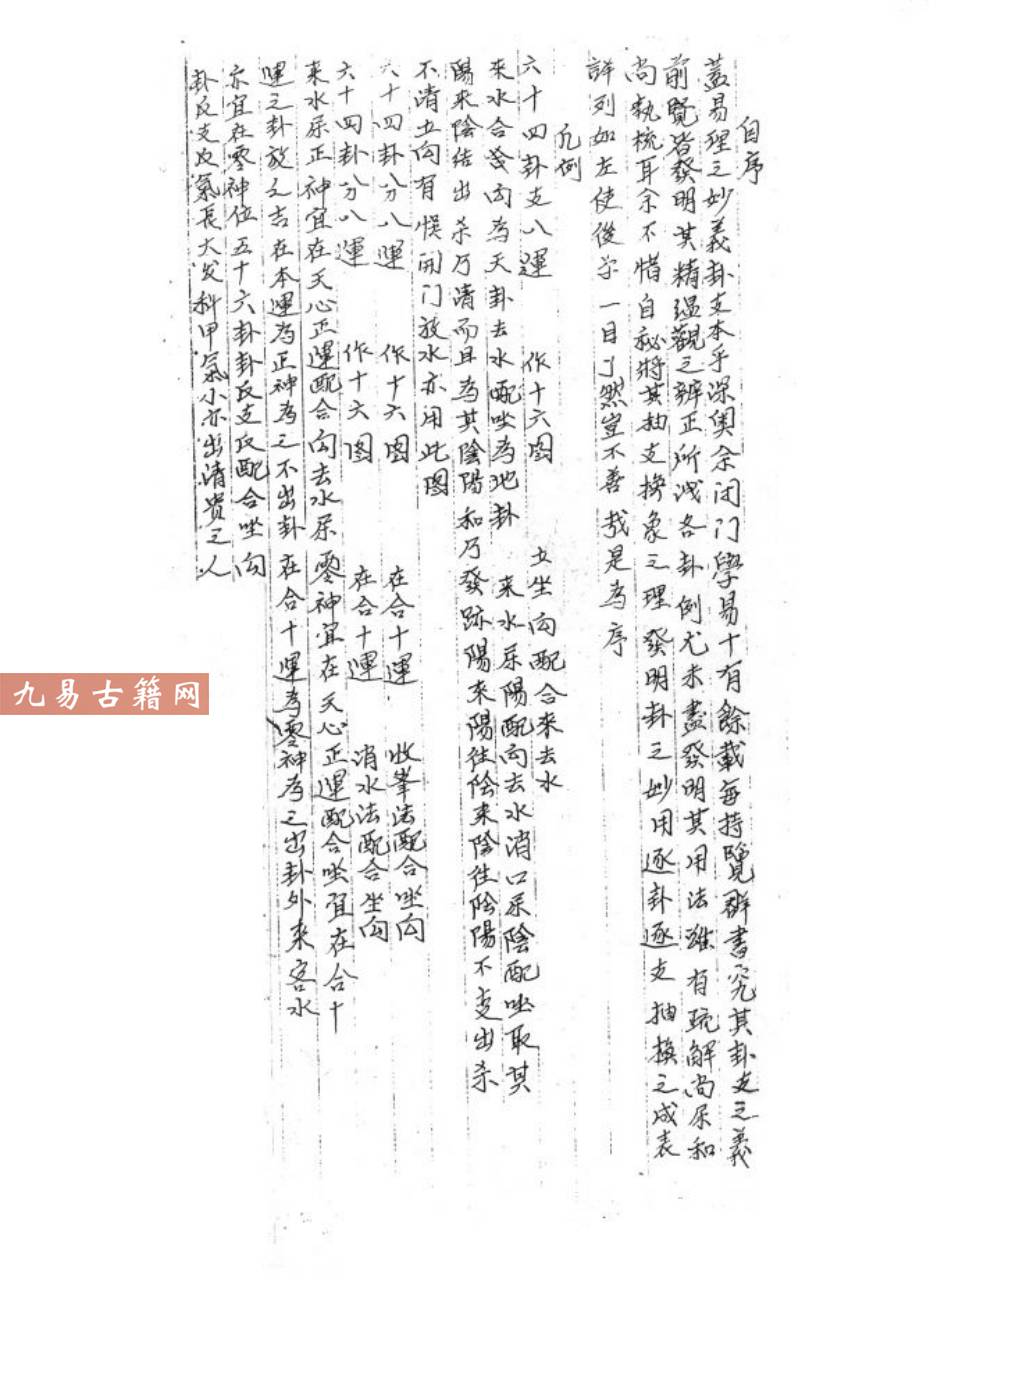 自序
蓋易理之妙義卦支本乎深奧余闭门學易十有餘載每持覽群書究其卦爻之義
前覽皆發明其精蘊觀之辨正所浅各卦例尤未盡發明其用法雖有疏解尚屎和
尚執梳耳余不惜自秘將其抽支換象之理發明卦之妙用逐卦逐支抽換之成表
詳列如左使後学一目了然豈不善哉是為序
凡例
六十四卦支八運 作十六图 立坐向配合来去水
来水合发向為天卦去水配坐為地卦 来水屎陽配向去水消口屎陰配坐取其
陽来陰结出杀乃清而且為其陰陽和乃發跡陽来陽往陰来陰往陰陽不支出杀
不清立向有悮開门放水亦用此图
六十四卦分八運 作十六图 在合十運 收峯法配合坐向
六十四卦分八運 作十六图 在合十運 消水法配合坐向
来水屎正神宜在天心正運配合向去水屎零神宜在天心正運配合坐宜在合十
運之卦放之吉在本運為正神為之不出卦在合十運為零神為之出卦外来客水
亦宜在零神位五十六卦卦反支反配合坐向
卦反支反氣長大发科甲氣小亦出清貴之人
九易古籍网